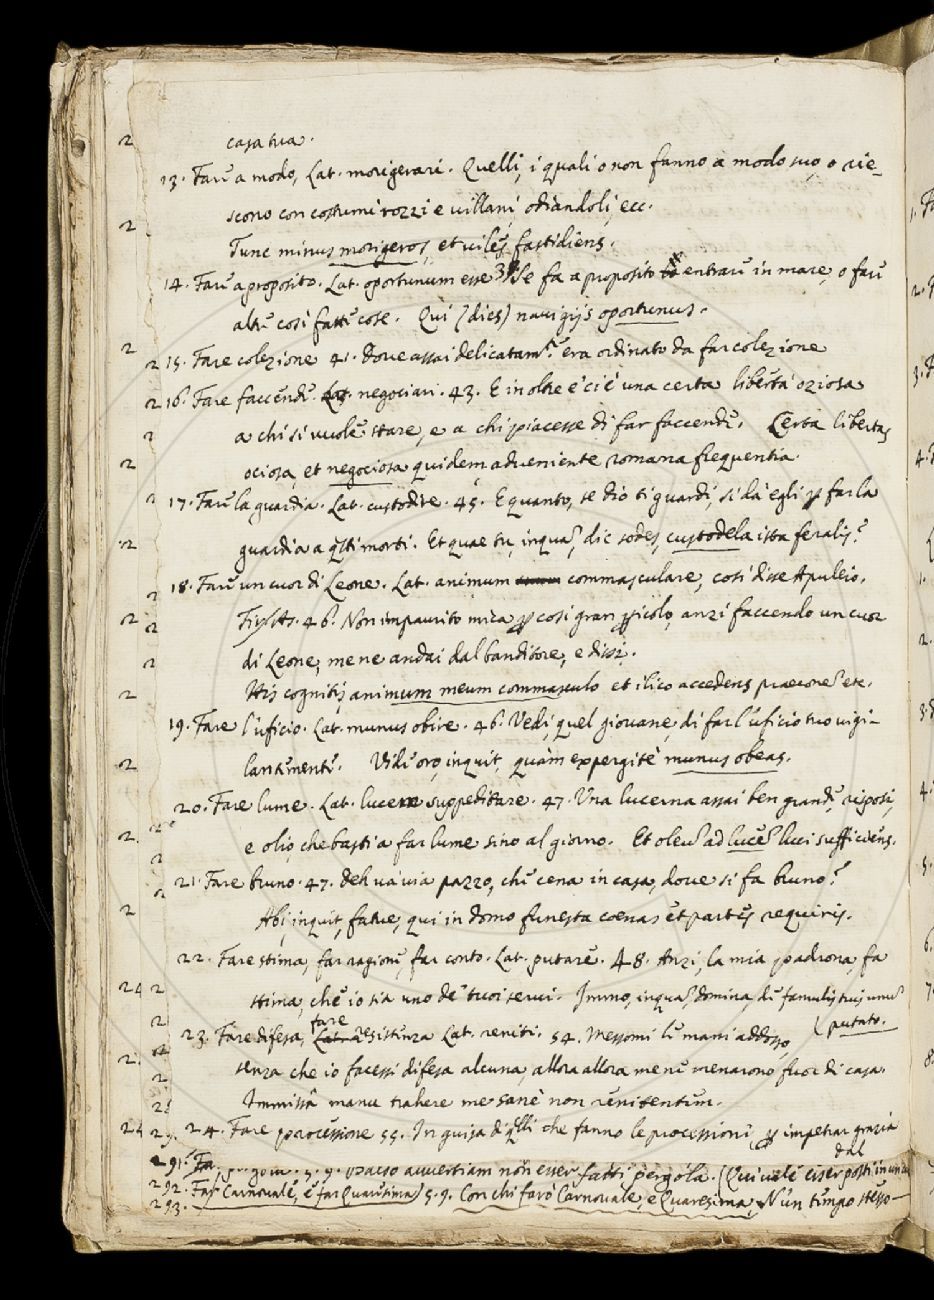 casa tua.
13. Fare a modo, Lat. morigerari. Quelli, i quali o non fanno a modo suo, o rie_
scono con costumi rozzi e villani, odiandoli, ecc.
Tunc minus morigeros, et viles fastidiens.
14. Fare a proposito. Lat. oportunum esse 39. Se fa a proposito entrare in mare, o fare
altre cosi fatte cose. Qui (dies) navigijs oportunus.
15. Fare colezione 41. Dove assai delicatam.te era ordinato da far colezione
16. Fare faccende. Lat. negociari. 43. E inoltre e' ci è una certa libertà oziosa
a chi si vuole stare, e a chi piacesse di far faccende. Certa libertas
ociosa, et negociosa quidem adveniente romana frequentia.
17. Fare la guardia. Lat. custodire. 45. E quanto, se dio ti guardi, si dà egli p far la
guardia a q.sti morti. Et quae tu, inqua, dic sodes, custodela ista feralis?
18. Fare un cuor di Leone. Lat. animum commasculare, così disse Apuleio.
46. Non impaurito mica p così gran picolo, anzi faccendo un cuor
di Leone, me ne andai dal banditore, e dissi.
His cognitis animum meum commasculo et ilico accedens praecone etc.
19. Fare l'uficio. Lat. munus obire. 46. Vedi, quel giovane, di far l'uficio tuo vigi-
lantemente. Vide oro, inquit, quàm expergite munus obeas.
20. Fare lume. Lat. lucem suppeditare. 47. Una lucerna assai ben grande, risposi,
e olio, che basti a far lume sino al giorno. Et oleu ad lucē luci sufficiens.
21. Fare bruno. 47. Deh va via pazzo, che cena in casa, dove si fa bruno?
Abi, inquit, fatue, qui in domo funesta coenas et partes requiris.
22. Fare stima, far ragione, far conto. Lat. putare. 48. Anzi, la mia padrona, fa
stima, che io sia uno de' tuoi servi. Immo, inqua, domina, de famulis tuis unu
putato.
23. Fare difesa, fare resistenza Lat. reniti. 54. Messomi le mani addosso
senza che io facessi difesa alcuna, allora allora me ne menarono fuor di casa.
Immissâ manu trahere me sanè non renitentem.
24. Fare processione 55. In guisa di q.lli che fanno le processioni p impetrar grazia
dal
291. avvertiam non esser fatti pergola. (Qui vale esser posti in
292. Far Carnovale, e far Quaresima) 59. Con chi farò Carnovale, e Quaresima, N'un tempo stesso
293.